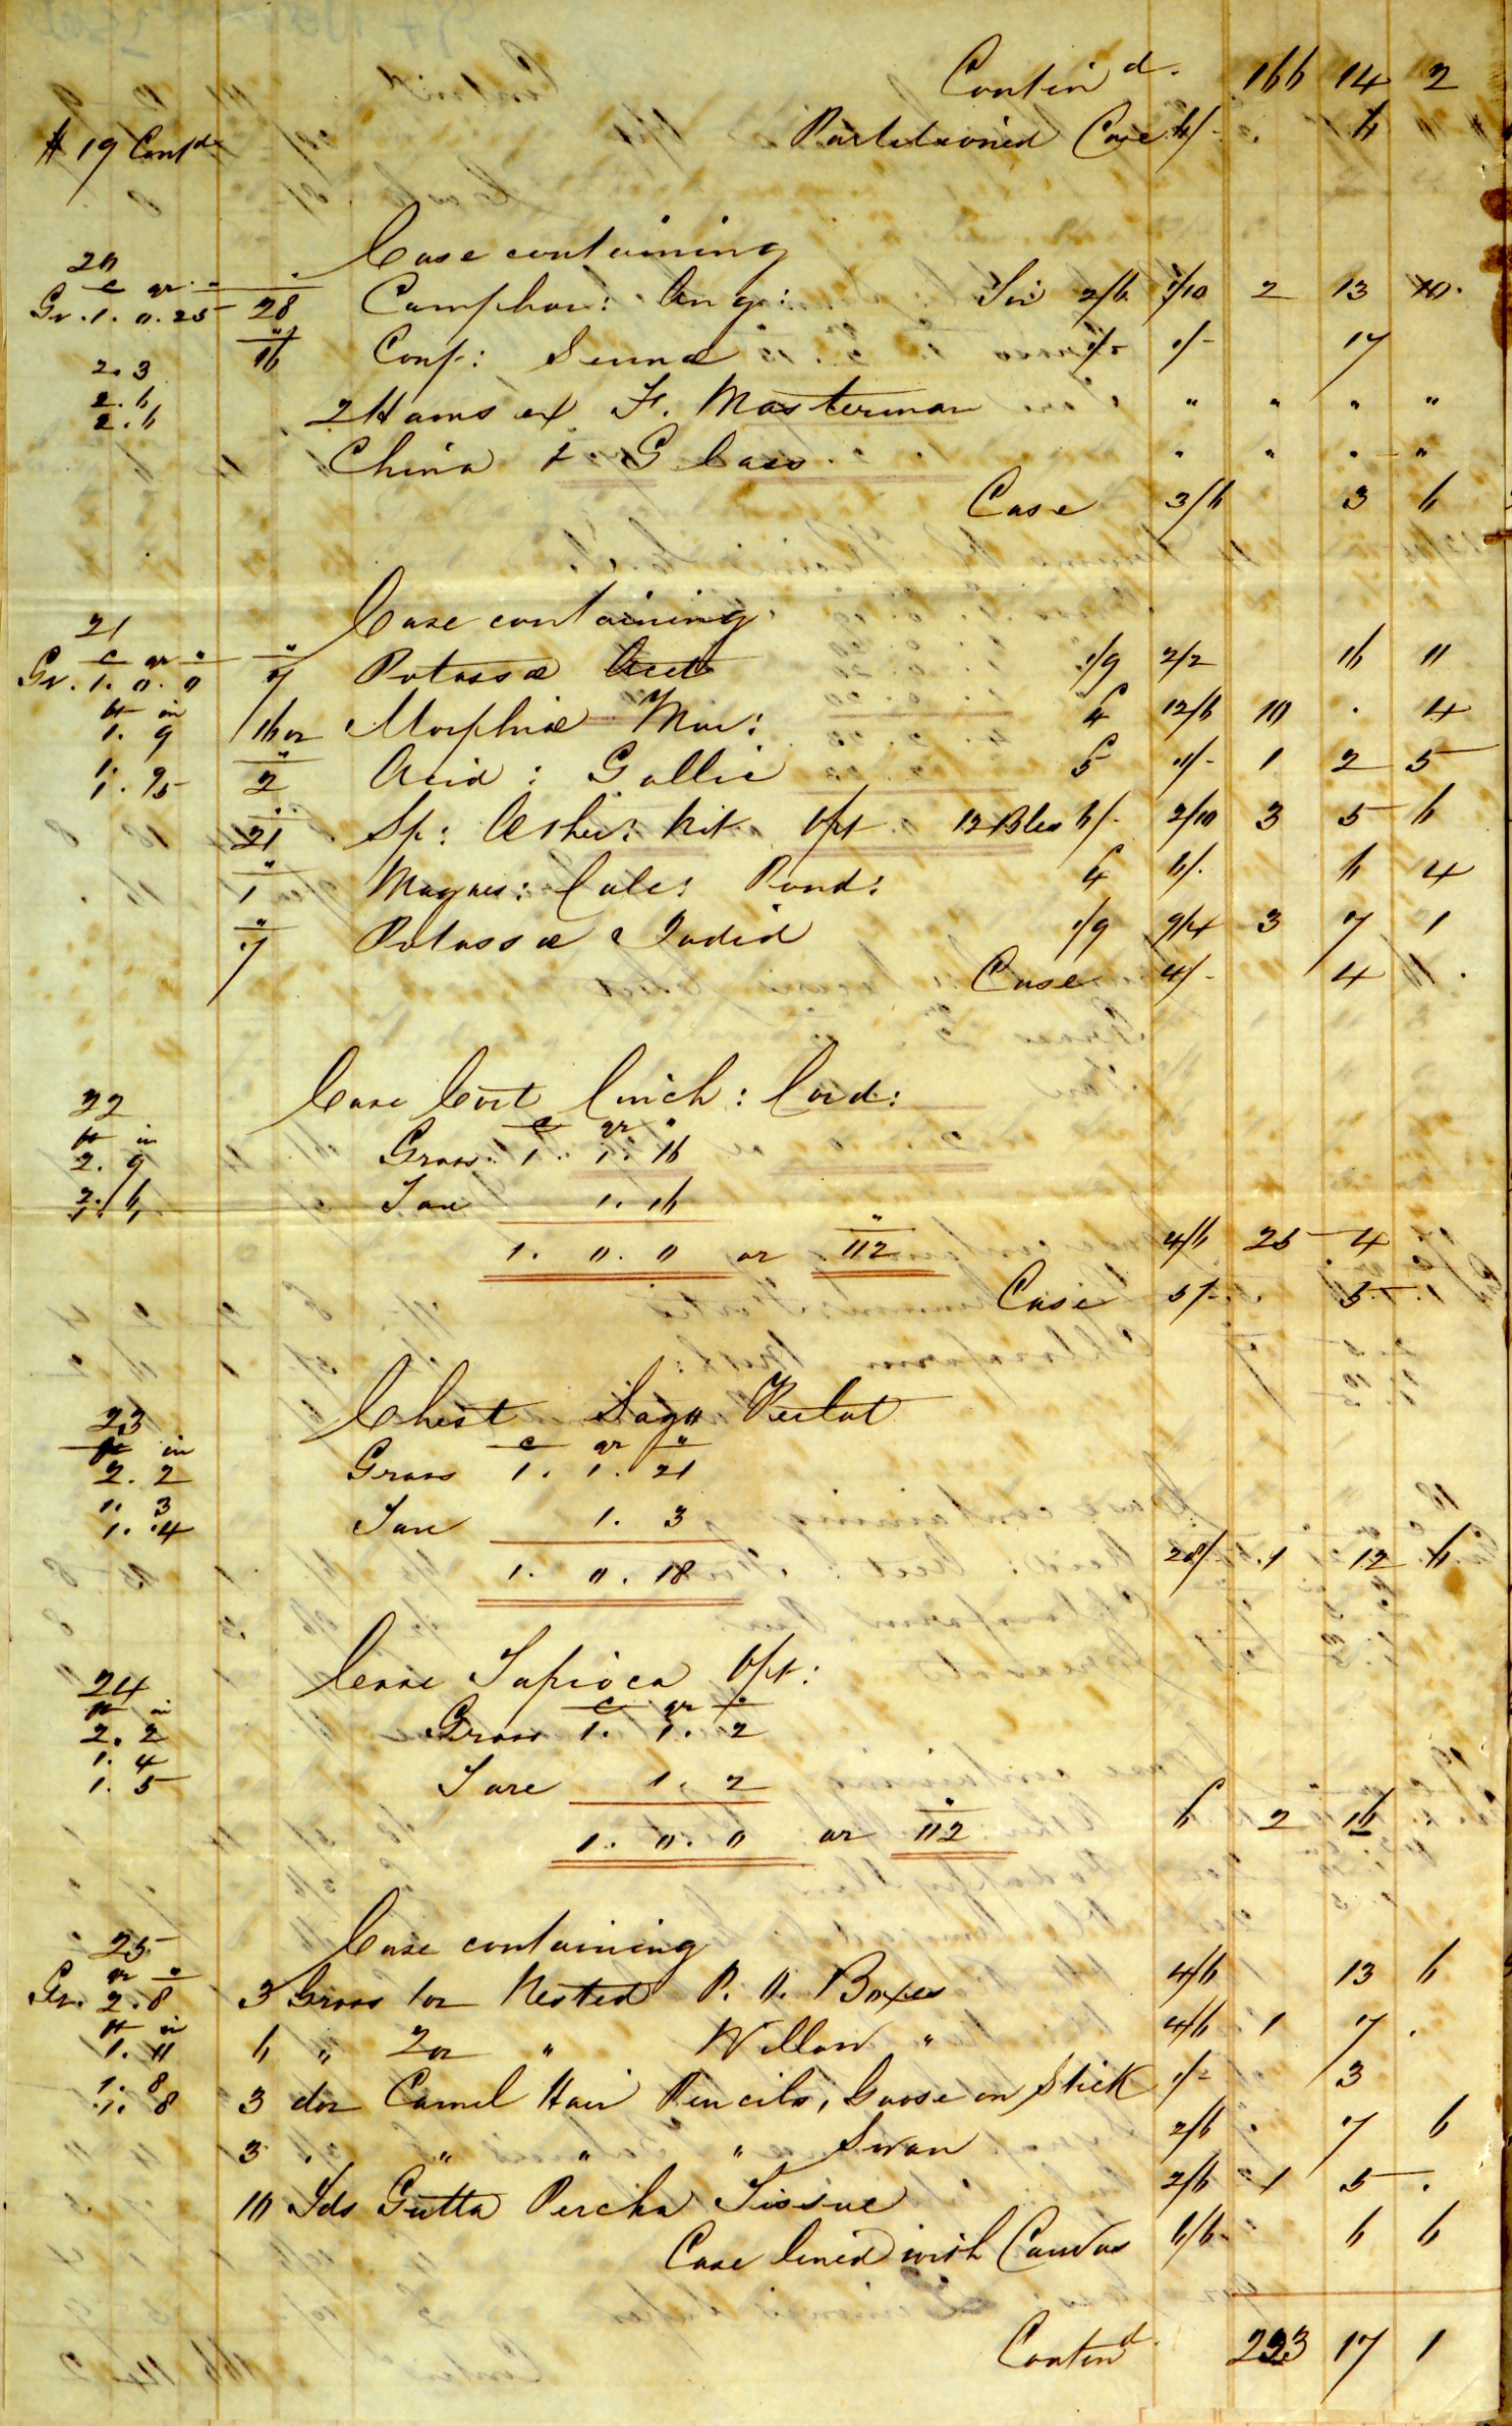 Contind. 166 14 2
# 19 Contd Partitioned Case 6/- . 6
20 Case containing
c qr "
Gr. 1. 0. 25 28 Camphor: Ang: Tin 2/6 1/10 2 13 10.
2. 3 16 Conf: Sennæ 1/- 1/- 17
2. 6
2. 6 2 Hams ex F. Masterman " " " "
China & Glass " " " "
Case 3/6 3 6
21 Case containing
c qr "
Gr. 1. 0. 0 7 Potassæ Acet 1/9 2/2 16 11
ft in
1. 9 16 oz Morphiæ Mur: 4 12/6 10 . 4
1. 2 Acid: Gallic 5 11/- 1 2 5
1. 5
21 Sp: Æther: Nit opt 12 Bles 6/- 2/10 3 5 6
1 Magnes: Calc: Pond: 4 6/. 6 4
7 Potassæ Iodid 1/9 9/4 3 7 1
Case 4/- 4 .
22 Case Cort Cinch: Cord:
ft in c qr "
2. 9 Gross. 1. 1. 16
2. 6 Tare 1. 16
1. 0. 0 or 112 4/6 25 4
Case 5/- 5 .
23 Chest Sago Perlat
ft in c qr "
2. 2 Gross 1. 1. 21
1. 3
1. 4 Tare 1. 3
1. 0. 18 28/- 1 12 6
24 Case Tapioca opt:
ft in c qr "
2. 2 Gross 1. 1. 2
1. 4
1. 5 Tare 1. 2
1. 0. 0 or 112 6 2 16
25 Case containing
qr "
Gr. 2. 8 3 Gross 1oz Nested P. O. Boxes 4/6 13 6
ft in
1. 11 6 " 2oz " Willow " 4/6 1 7 .
1. 8
1. 8 3 doz Camel Hair Pencils, Goose on Stick 1/- 3
3 . " " " Swan 2/6 7 6
10 Yds Gutta Percha Tissue 2/6 1 5 .
Case lined with Canvas 6/6 6 6
Contind. 223 17 1